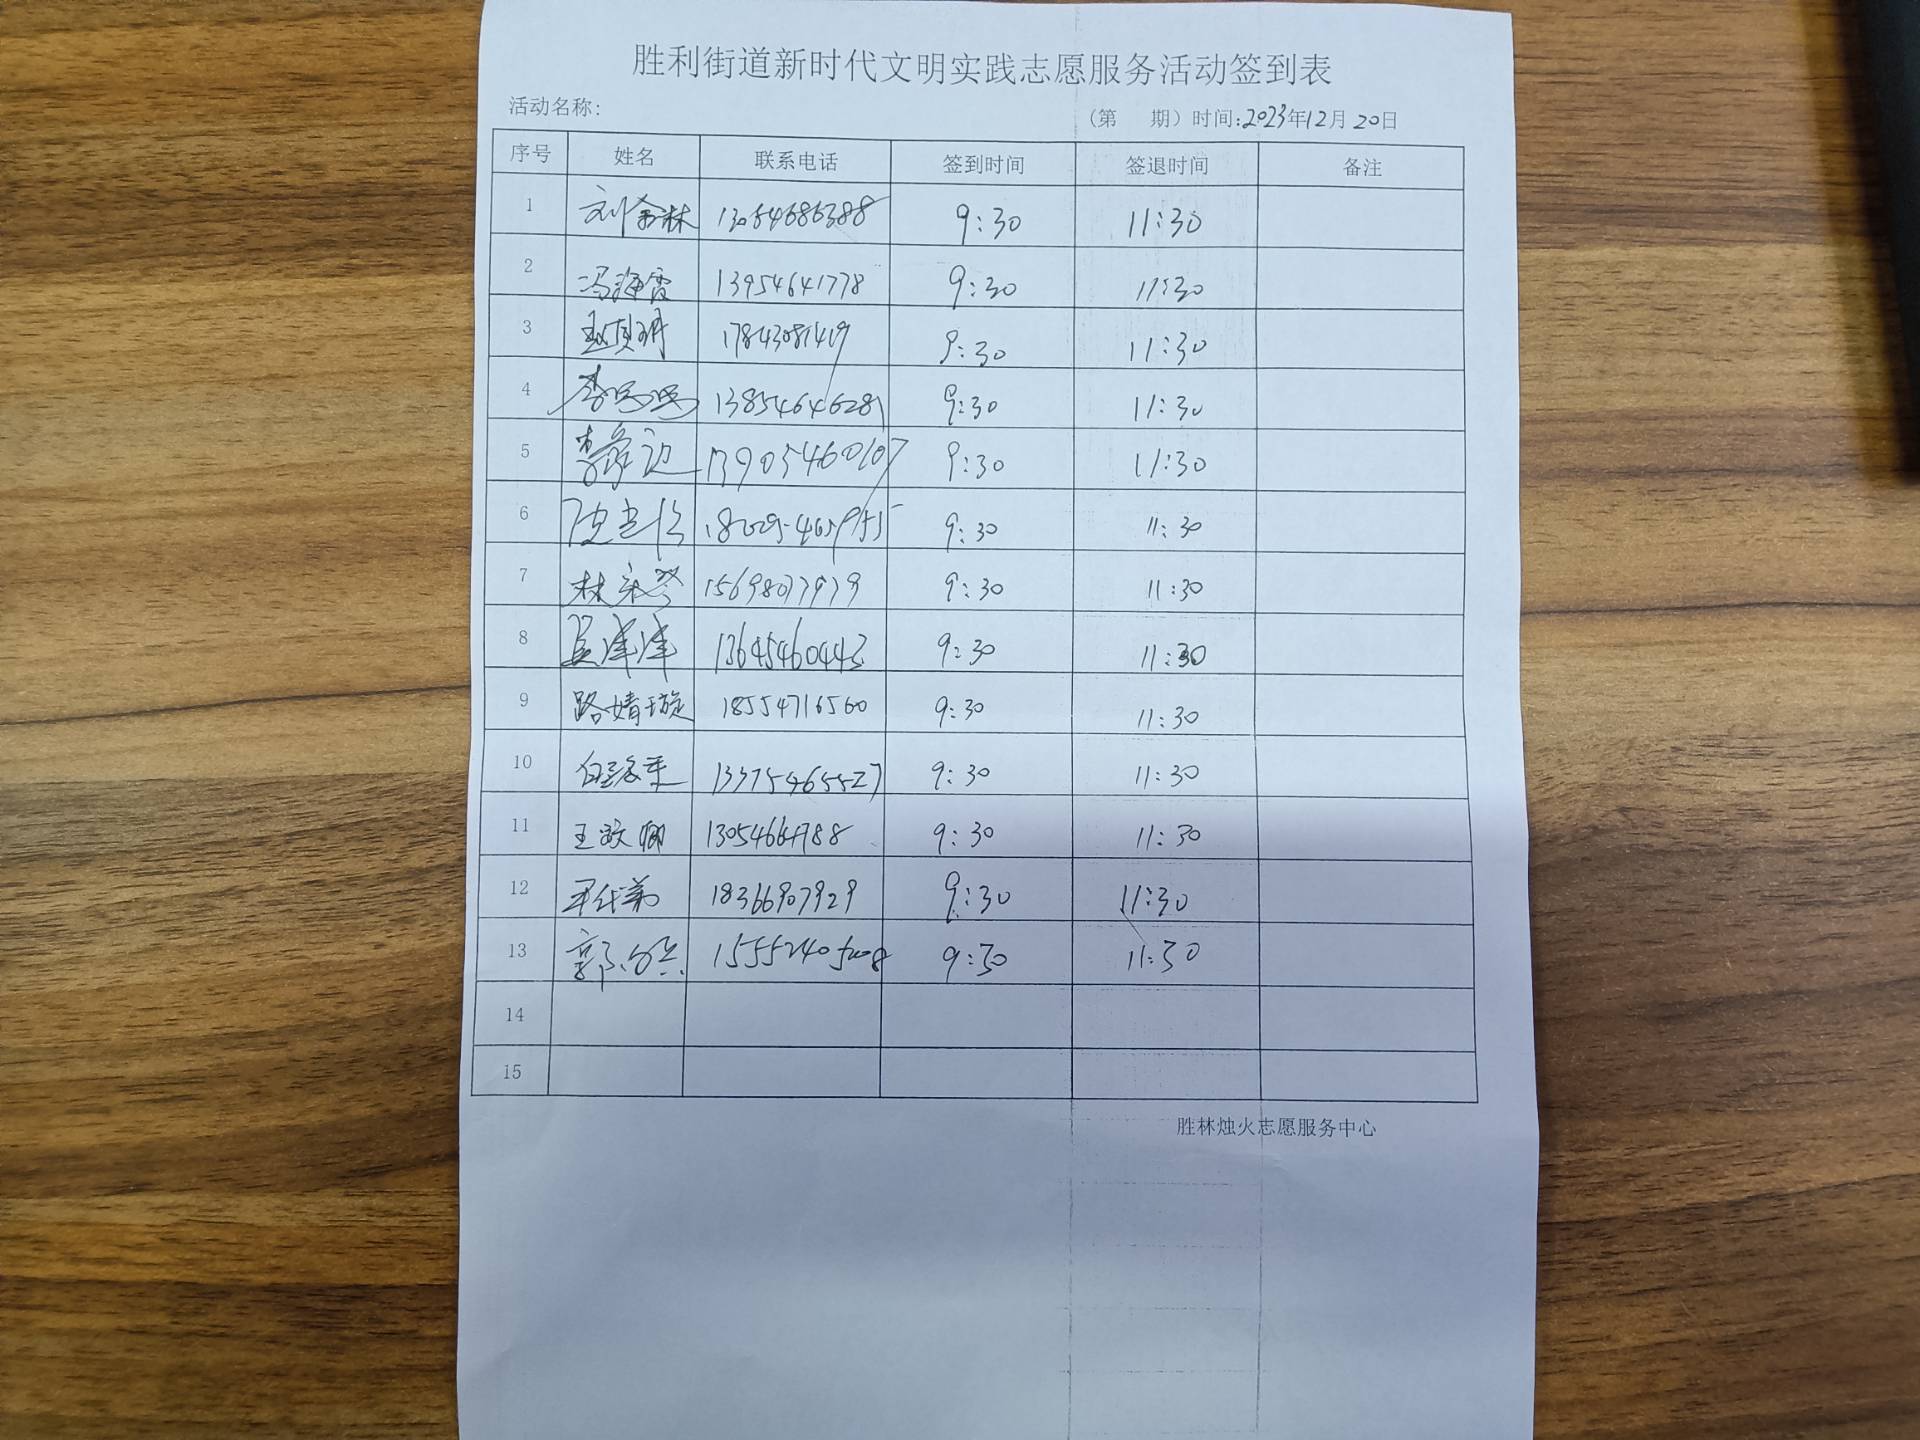 胜利街道新时代文明实践志愿服务活动签到表
活动名称:
(第 期) 时间:2023年12月20日
序号 姓名 联系电话 签到时间 签退时间 备注
1 刘金林 13054686388 9:30 11:30
2 冯海霞 13954641778 9:30 11:30
3 赵贝玥 17843081419 9:30 11:30
4 13854646281 9:30 11:30
5 13905460107 9:30 11:30
6 9:30 11:30
7 15698077979 9:30 11:30
8 吴津津 13645460443 9:30 11:30
9 路婧璇 18554716560 9:30 11:30
10 13375465527 9:30 11:30
11 9:30 11:30
12 18366907929 9:30 11:30
13 15552405008 9:30 11:30
14
15
胜林烛火志愿服务中心